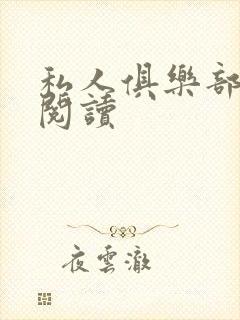 私人俱樂部
閱讀
夜雲澈